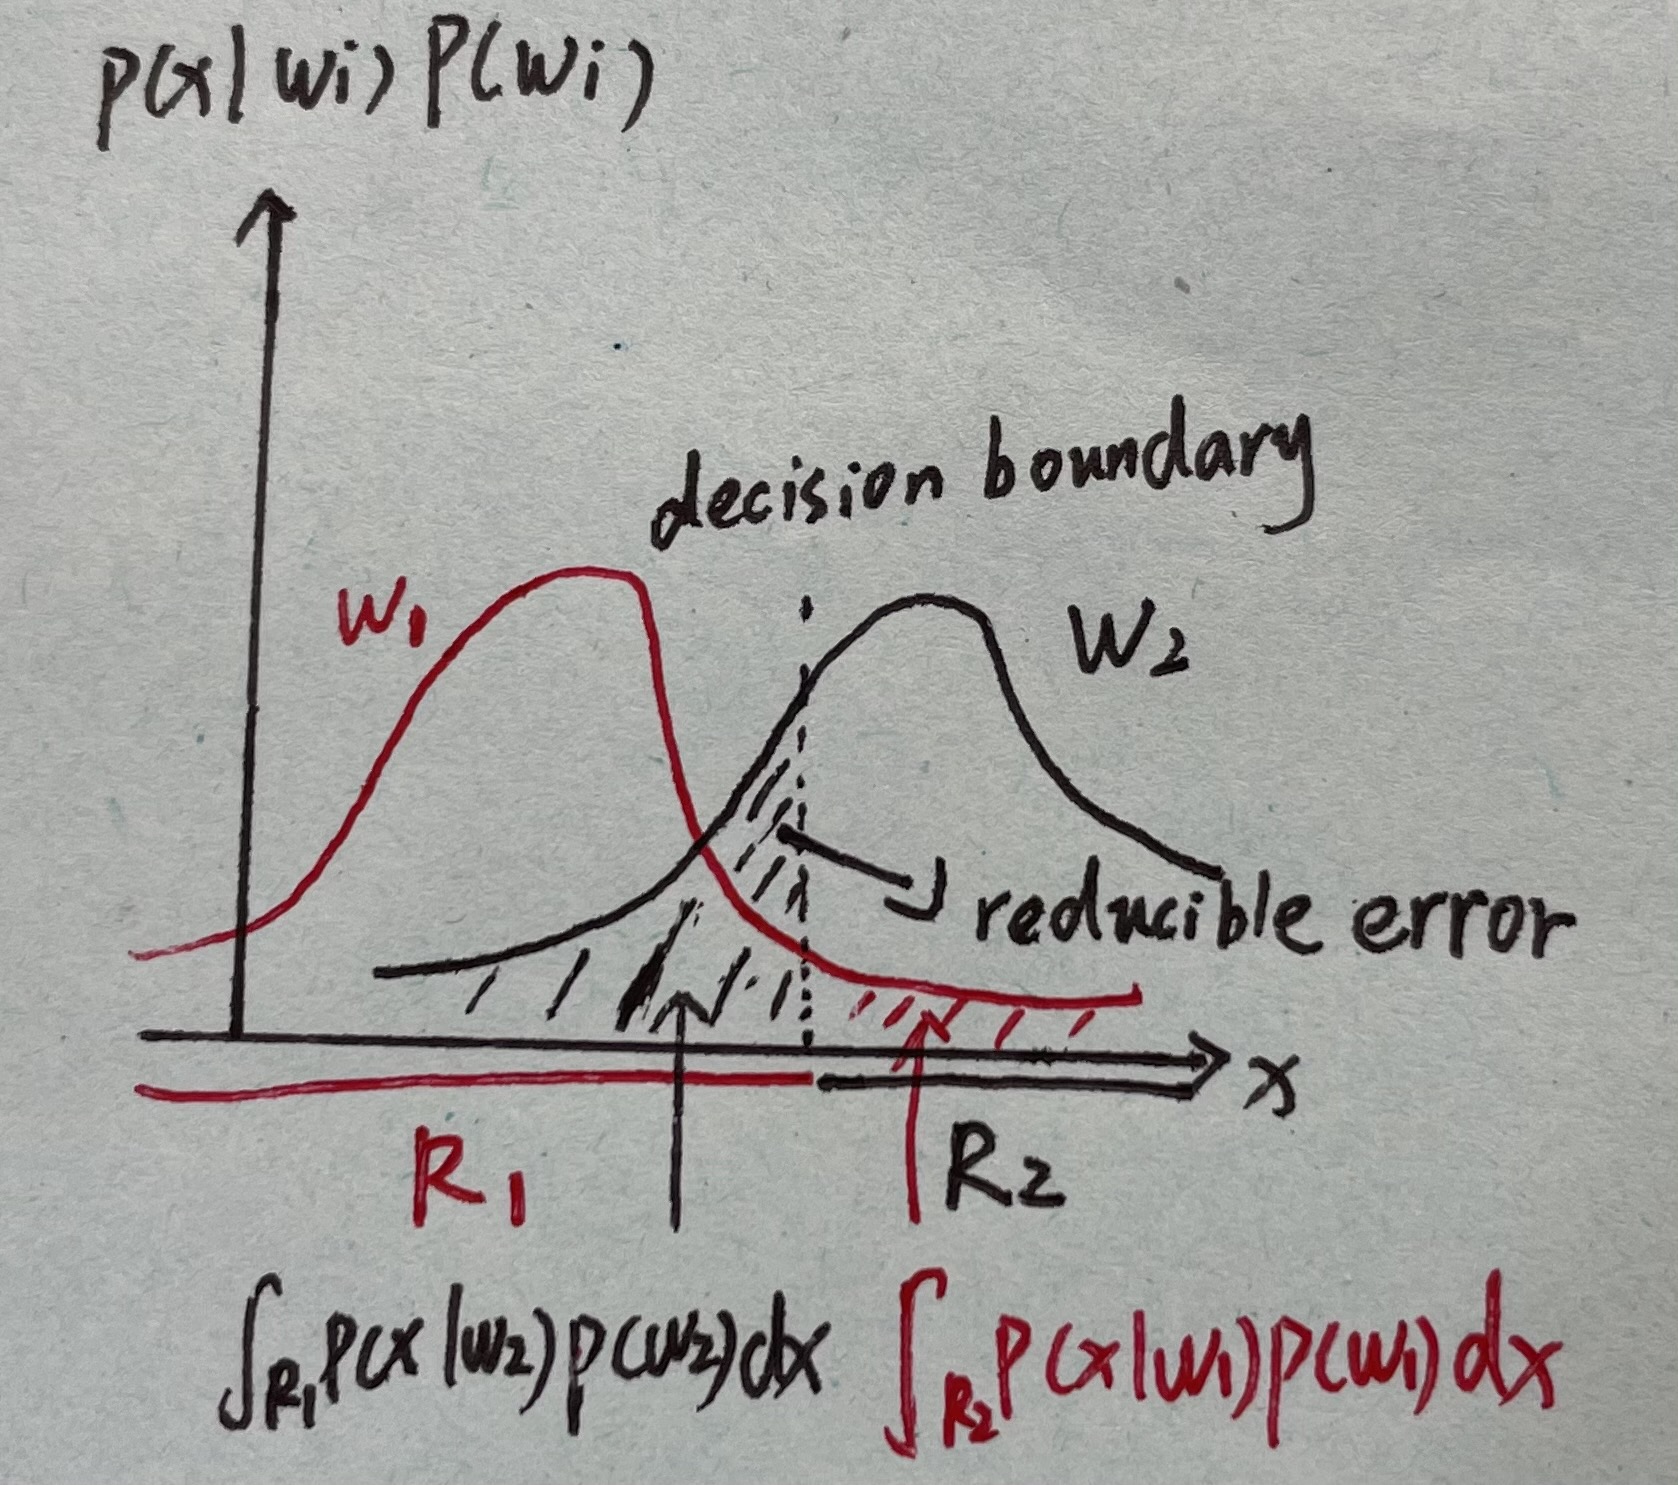 p(x|wi) P(wi)
decision boundary
W1
W2
reducible error
x
R1
R2
∫R1 P(x|w2)p(w2)dx
∫R2 P(x|w1)p(w1)dx